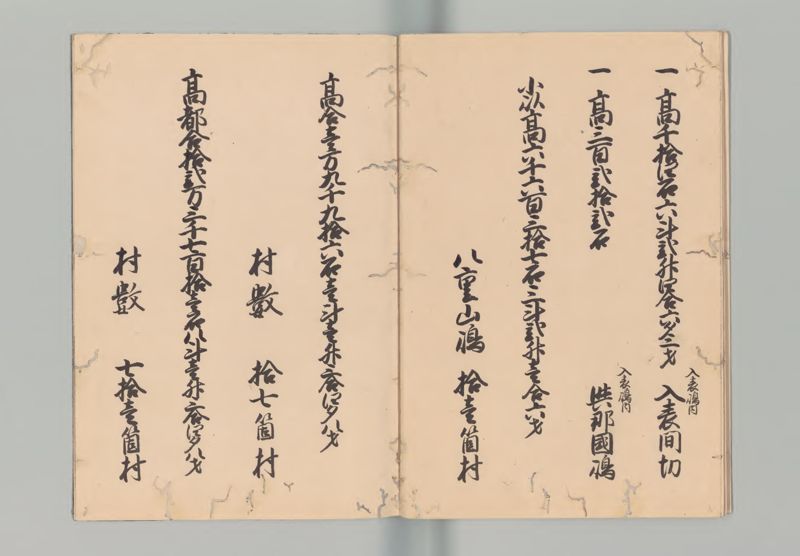 一 高千拾四石六斗弐升四合六勺三才 入表間切
入表嶋内
一 高三百弐拾弐石 与那國嶋
入表嶋内
小以高六千六百三拾七石三斗弐升壹合六才
八重山嶋 拾壹箇村
高合壹万九千九拾六石壹斗壹升六合四夕八才
村數 拾七箇村
高都合拾弐万三千七百拾壹石八斗壹升六合四夕八才
村數 七拾壹箇村